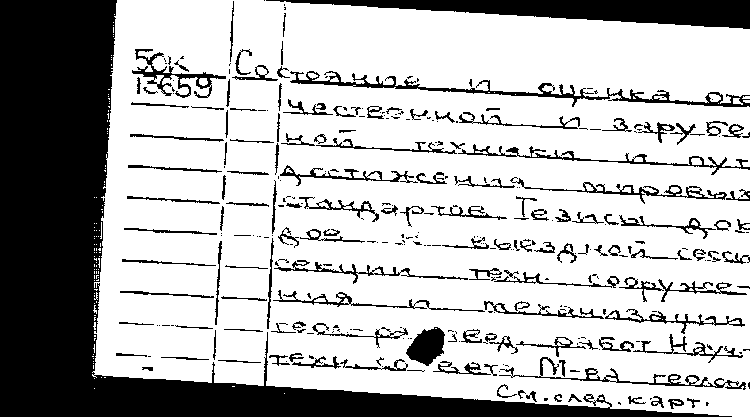 50К
13659
Состояние и оценка оте
чественной и зарубе
ной техники и пут
достижения мировых
стандартов. Тезисы док
дов к выездной сесси
секции техн. сооруже-
ния и механизации
геол-развед. работ Науч.-
техн. совета М-ва геологи
См. след. карт.